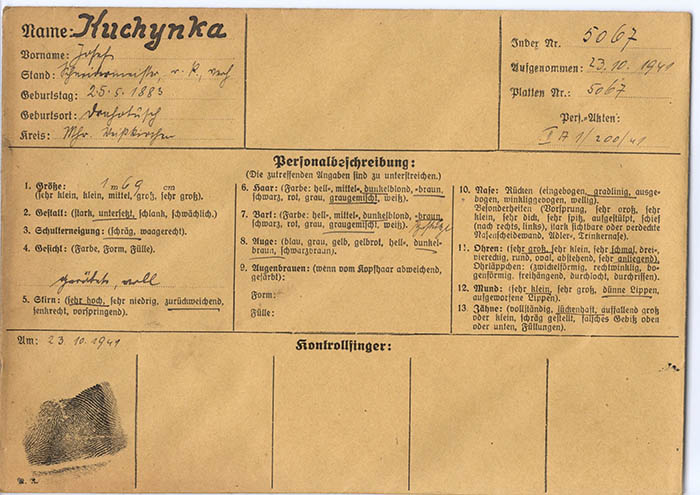 Name: Kuchynka
Vorname: Josef
Stand: Schneidermeister, r. k., verh
Geburtstag: 25.5.1883
Geburtsort: Drahotusch
Kreis: Mhr. Weißkirchen
Index Nr. 5067
Aufgenommen: 23.10.1941
Platten Nr.: 5067
Pers.-Akten:
I A 1/200/41
Personalbeschreibung:
(Die zutreffenden Angaben sind zu unterstreichen.)
1. Größe: 1 m 69 cm
(sehr klein, klein, mittel, groß, sehr groß).
2. Gestalt: (stark, untersetzt, schlank, schwächlich).
3. Schulterneigung: (schräg, waagerecht).
4. Gesicht: (Farbe, Form, Fülle).
gerötet voll
5. Stirn: (sehr hoch, sehr niedrig, zurückweichend,
senkrecht, vorspringend).
6. Haar: (Farbe: hell-, mittel-, dunkelblond, -braun,
schwarz, rot, grau, graugemischt, weiß).
7. Bart: (Farbe: hell-, mittel-, dunkelblond, -braun,
schwarz, rot, grau, graugemischt, weiß).
8. Auge: (blau, grau, gelb, gelbrot, hell-, dunkel-
braun, schwarzbraun).
9. Augenbrauen: (wenn vom Kopfhaar abweichend,
gefärbt).
Form:
Fülle:
10. Nase: Rücken (eingebogen, gradlinig, ausge-
bogen, winkliggebogen, wellig).
Besonderheiten (Vorsprung, sehr groß, sehr
klein, sehr dick, sehr spitz, aufgestülpt, schief
(nach rechts, links), stark sichtbare oder verdeckte
Nasenscheidewand, Adler-, Trinkernase).
11. Ohren: (sehr groß, sehr klein, sehr schmal, drei-
viereckig, rund, oval, abstehend, sehr anliegend).
Ohrläppchen: (zwickelförmig, rechtwinklig, bo-
genförmig, freihängend, durchlocht, durchrissen).
12. Mund: (sehr klein, sehr groß, dünne Lippen,
aufgeworfene Lippen).
13. Zähne: (vollständig, lückenhaft, auffallend groß
oder klein, schräg gestellt, falsches Gebiß oben
oder unten, Füllungen).
Am: 23.10.1941
Kontrollfinger: